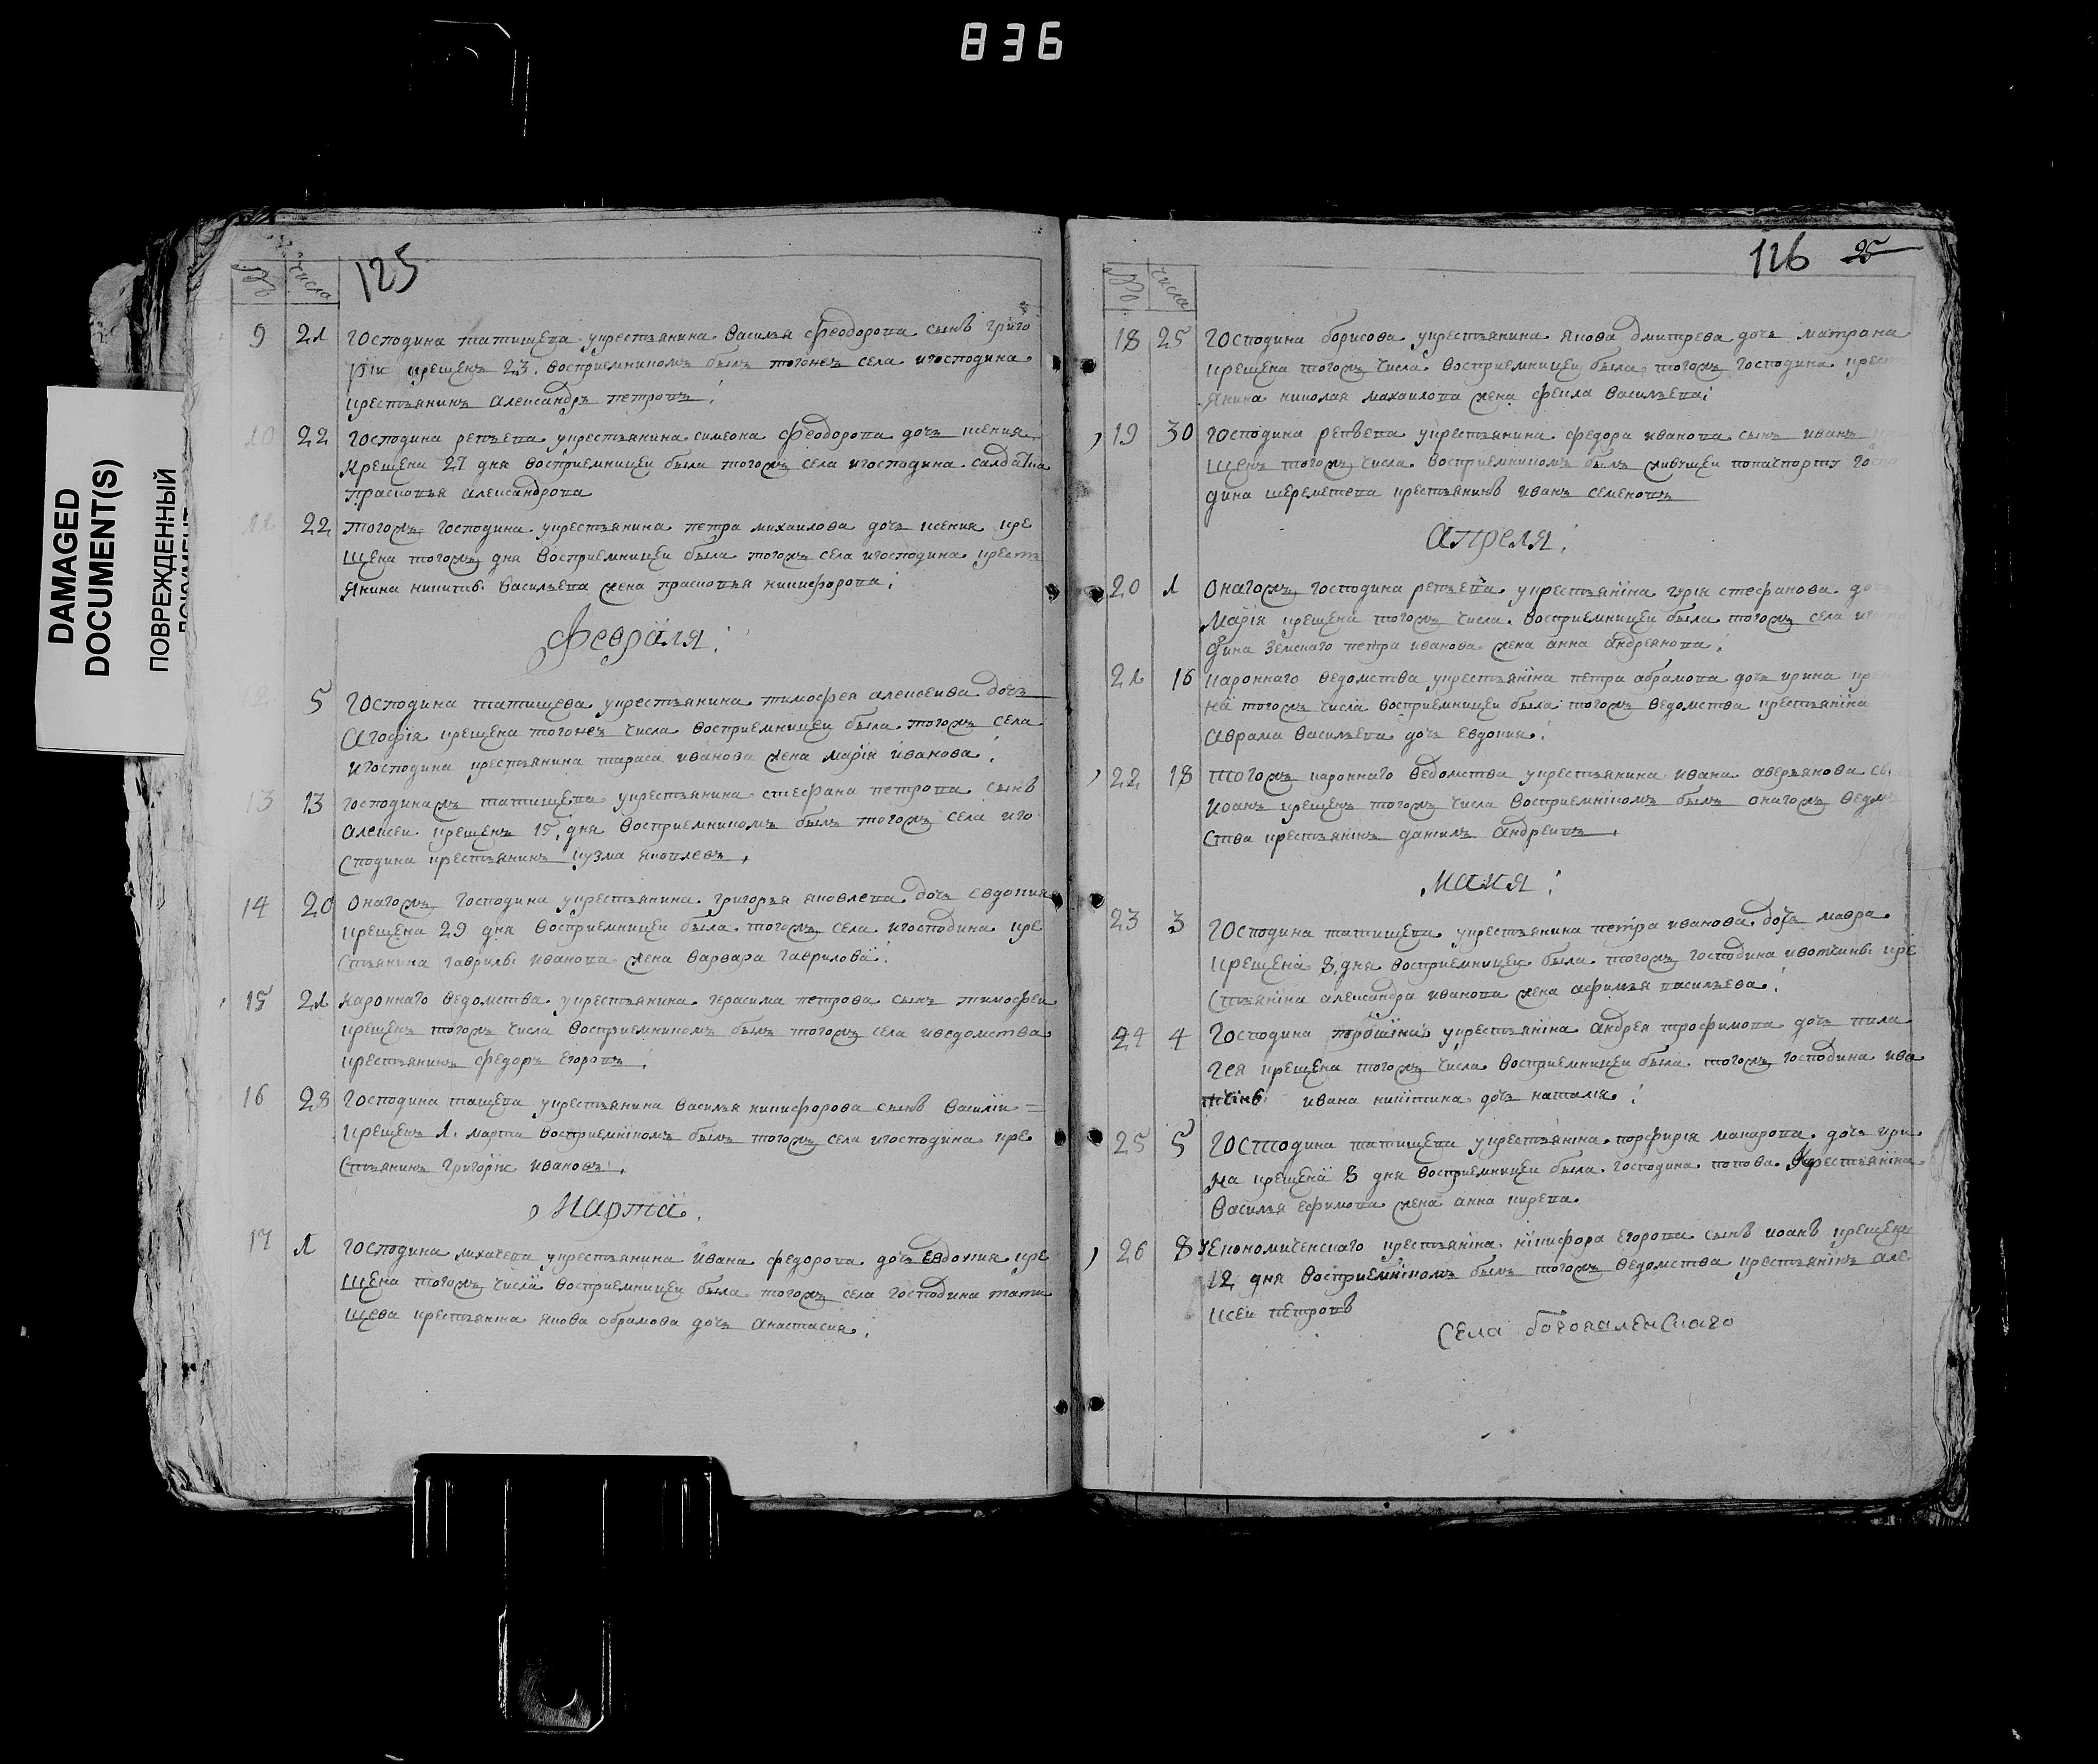 836
DAMAGED
DOCUMENT(S)
ПОВРЕЖДЕННЫЙ
125
№ числа
9 21 Господина татищева укрестьянина Василья феодорова сынъ григо
рїи крещенъ 23. восприемникомъ былъ тогожъ села игосподина
крестьянинъ александръ петровъ
10 22 Господина репьева укрестьянина симеона феодорова дочь ксения
крещена 27 дня восприемницеи была тогожъ села игосподина салдатка
прасковья александрова
11 22 тогожъ господина укрестьянина петра михаилова дочь ксения кре
щена тогожъ дня восприемницеи была тогожъ села игосподина кресть
янина никиты васильева жена прасковья никифорова
Февраля
12 5 Господина татищева укрестьянина тимофея алексеива дочь
Агофїя крещена тогожъ числа восприемницеи была тогожъ села
игосподина крестьянина тараса иванова жена марїя иванова
13 13 господинажъ татищева укрестьянина стефана петрова сынъ
алексеи крещенъ 15 дня восприемникомъ былъ тогожъ села иго
сподина крестьянинъ кузма яковлевъ
14 20 онагожъ господина укрестьянина григорья яковлева дочь евдокия
крещена 29 дня восприемницеи была тогожъ села игосподина кре
стьянина гаврилы иванова жена варвара гаврилова
15 21 кароннаго ведомства укрестьянина герасима петрова сынъ тимофеи
крещенъ тогожъ числа восприемникомъ былъ тогожъ села иведомства
крестьянинъ федоръ егоровъ
16 28 Господина тащева укрестьянина василья никифорова сынъ василїи
крещенъ 1. марта восприемнїкомъ былъ тогожъ села игосподина кре
стьянинъ григорїи ивановъ
Марта
17 1 господина лихачева укрестьянина ивана федорова дочь евдокия кре
щена тогожъ числа восприемницеи была тогожъ села господина тати
щева крестьянїна якова обрамова дочь анастасия
126 25
№ числа
18 25 господина борисова укрестьянина якова дмитрева дочь матрона
крещена тогожъ числа восприемницеи была тогожъ господина крест
янина николая махаилова жена фекла васильева
19 30 господина репьева укрестьянина федора иванова сынъ иванъ
щенъ тогожъ числа восприемникомъ былъ живущеи попачпорту госпо
дина шереметева крестьянинъ иванъ семеновъ
Апреля
20 1 онагожъ господина репьева укрестьянїна гурїя стефанова доч
Марїя крещена тогожъ числа восприемницеи была тогожъ села
дина земскаго петра иванова жена анна андреянова
21 16 кароннаго ведомства укрестьянїна петра абрамова дочь ирина
на тогожъ числа восприемницеи была тогожъ ведомства крестьянїна
аврама васильева дочь евдокия
22 18 тогожъ кароннаго ведомства укрестьянина ивана аверьянова
иоанъ крещенъ тогожъ числа восприемнїкомъ былъ онагожъ ведом
ства крестьянїнъ данилъ андреивъ
Маия
23 3 господина татищева укрестьянина петра иванова дочь мавра
крещена 8 дня восприемницеи была тогожъ господина ивотчины кре
стьянїна александра иванова жена афимья васильева
24 4 Господина укрестьянїна андрея трофимова дочь пила
гея крещена тогожъ числа восприемницеи была тогожъ господина иво
тчинъ ивана никїтина дочь наталїя
25 5 господина татищева укрестьянїна порфирїя макарова дочь ири
на крещена 8 дня восприемницеи была господина попова крестьянїна
василья ефимова жена анна кирева
26 8 уекономическаго крестьянїна нїкифора егорова сынъ иоанъ крещенъ
12 дня восприемнїкомъ былъ тогожъ ведомства крестьянїнъ але
ксеи петровъ
Села богоявленскаго